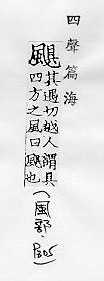 四聲篇海
颶
其遇切越人謂具
四方之風曰颶也
(風部.P305)